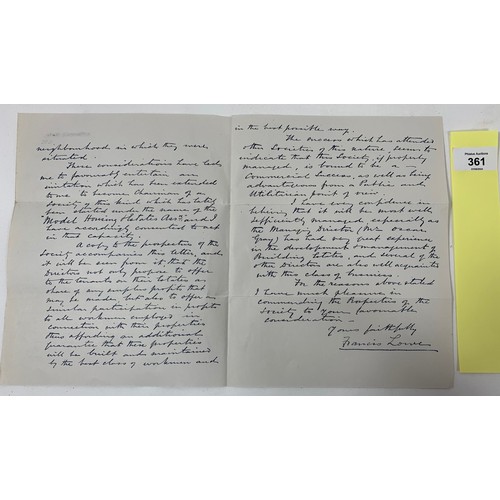 neighbourhood in which they were
situated.
These considerations have led
me to favourably entertain an
invitation which has been extended
to me to become Chairman of a
Society of this kind which has lately
been started under the name of the
Model Housing Estates Assn and I
have accordingly consented to act
in that capacity.
A copy to the prospectus of the
Society accompanies this letter, and
it will be seen from it that the
Directors not only propose to offer
to the tenants on their estates a
share of any surplus profits that
may be made, but also to offer a
similar participation in profits
to all workmen employed in
connection with their properties
thus affording an additional
guarantee that these properties
will be built and maintained
by the best class of workmen and
in the best possible way.
The success which has attended
other Societies of this nature seems to
indicate that this Society, if properly
managed, is bound to be a
Commercial Success, as well as being
advantageous from a Public and
Utilitarian point of view.
I have every confidence in
believing that it will be most well
efficiently managed especially as
the Managing Director (Mr Oscar
Gray) has had very great experience
in the development & management of
Building Estates, and several of the
other Directors are also well acquainted
with this class of business.
For the reasons above stated
I have much pleasure in
commending the Prospectus of the
Society to your favourable
consideration
Yours faithfully
Francis Lowe
361